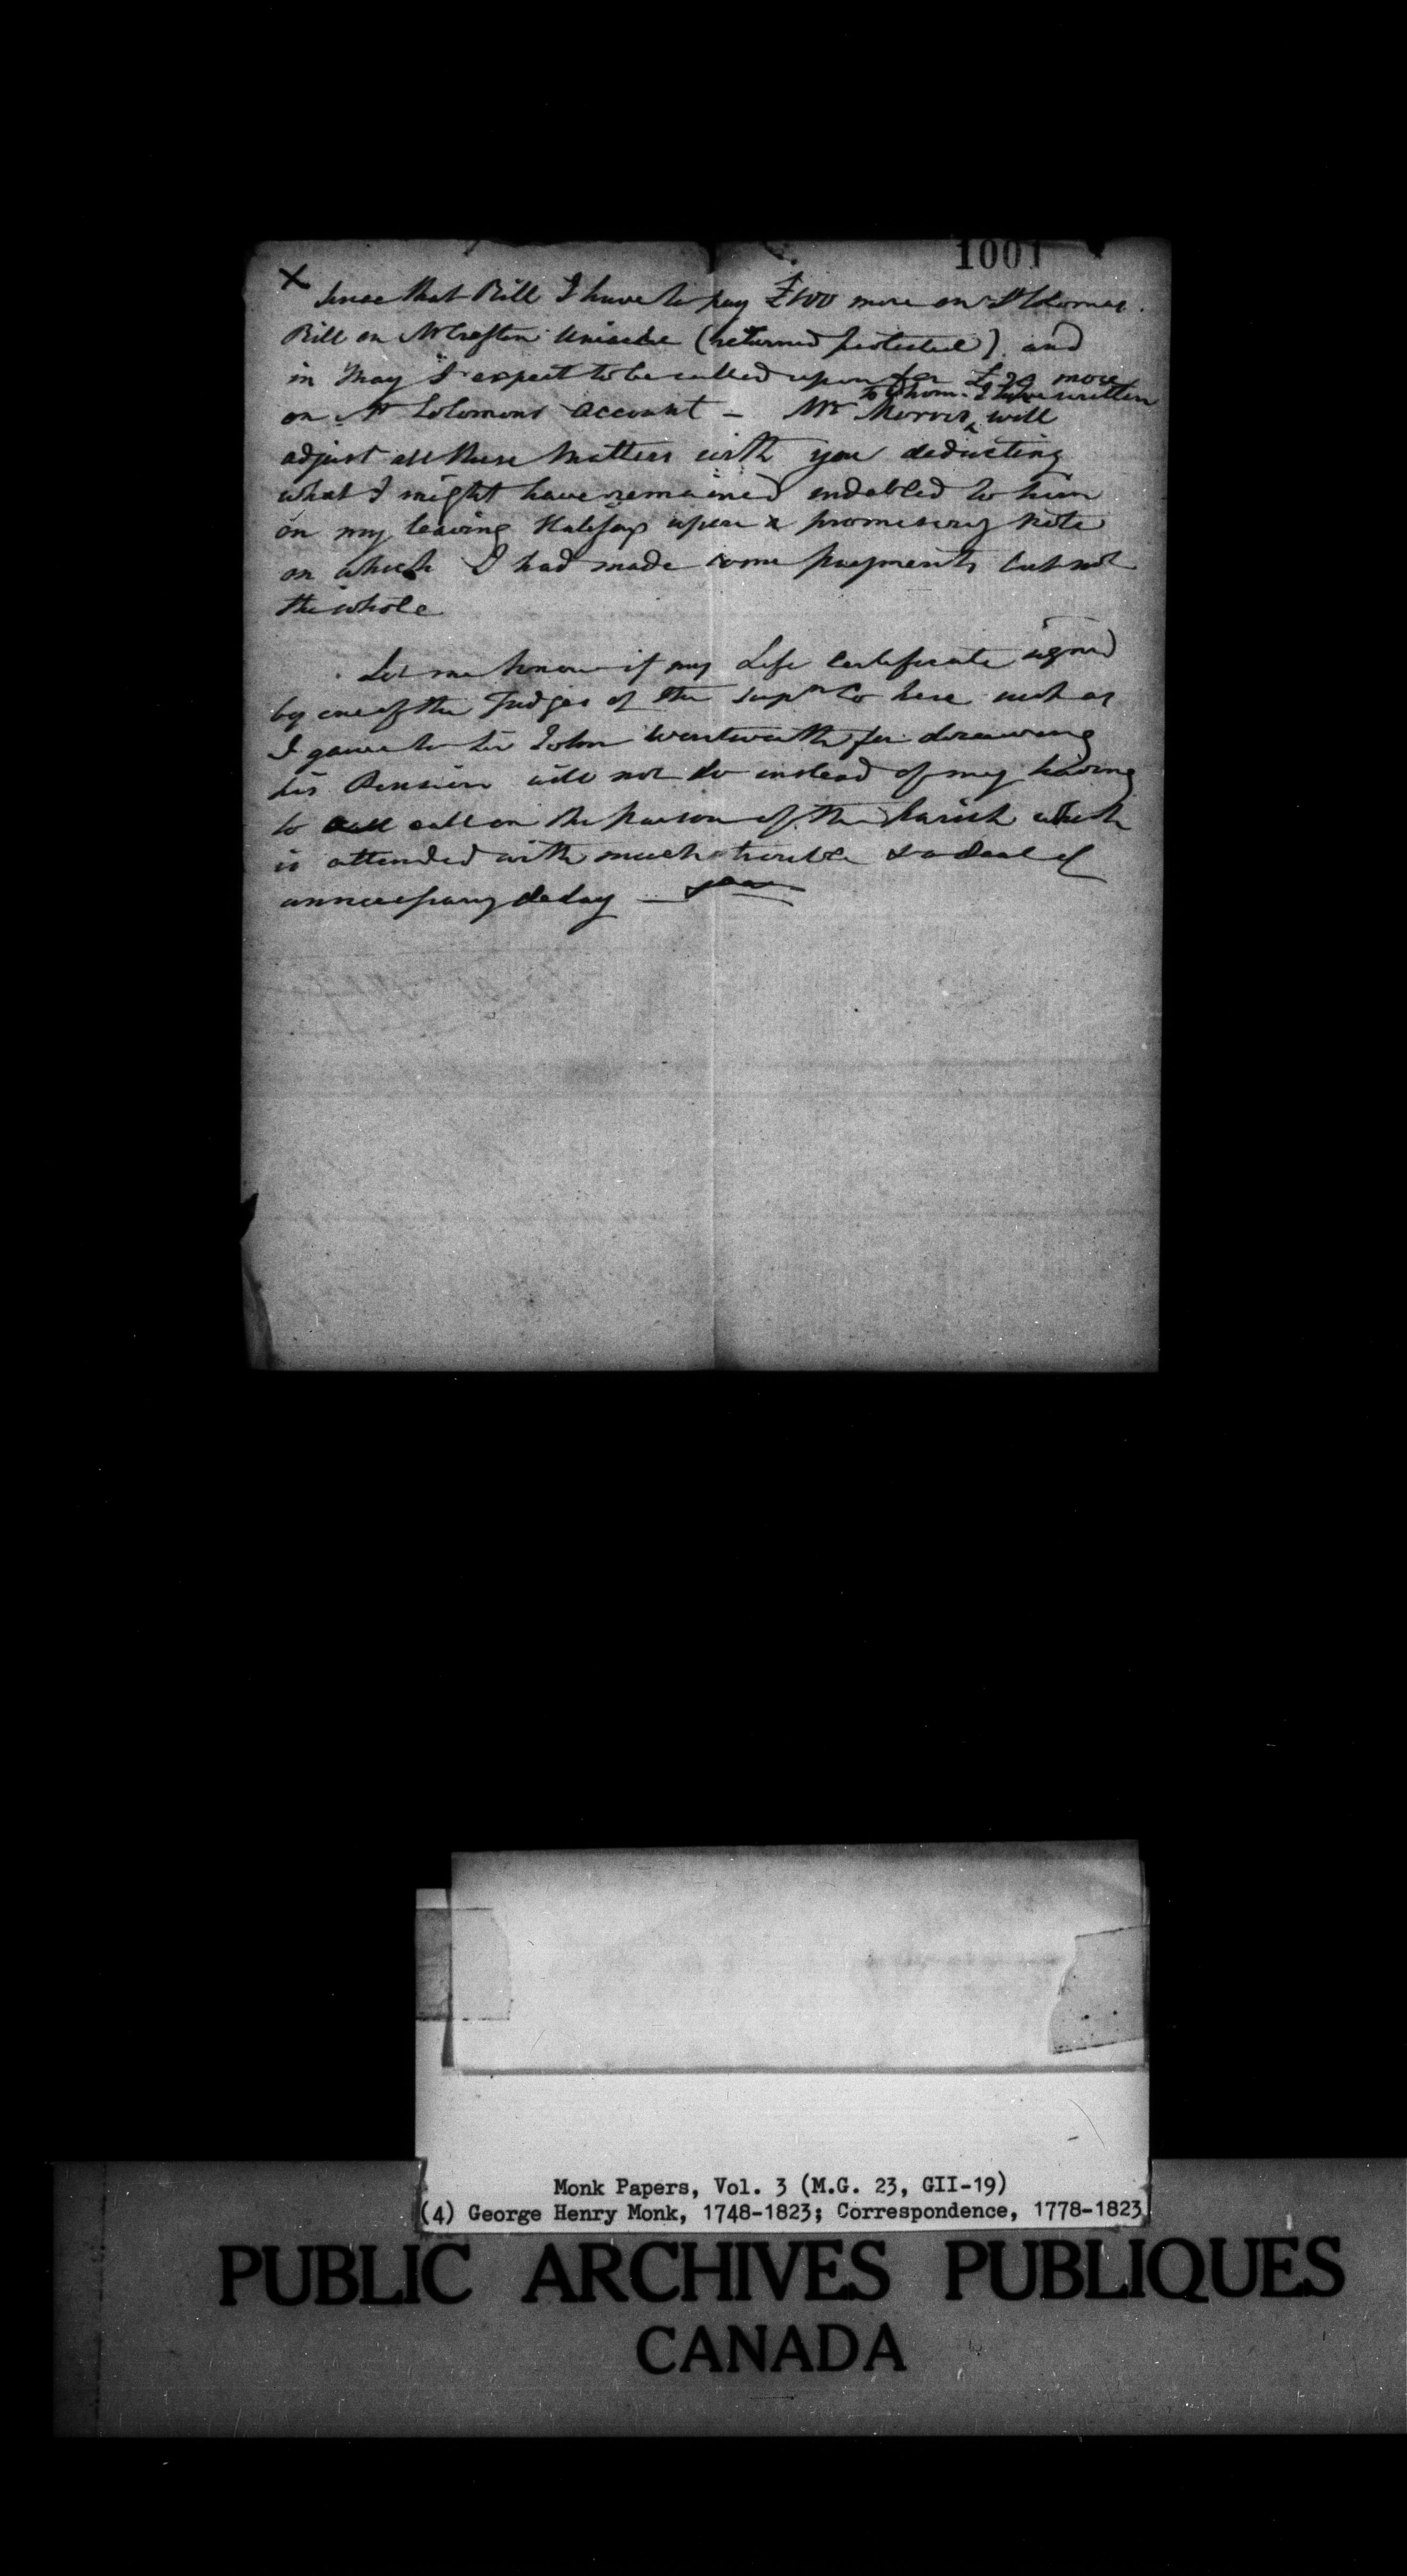 1001
X since that Bill I have to pay £100 more on
Bill on Mr Crofton Uniacke (returned protested) and
in May I expect to be called upon for more
to whom I have written
on Mr Solomons Account — Mr Morris ^ will
adjust all these Matters with you deducting
what I might have remained endebted to him
on my leaving Halifax upon a promissory Note
on which I had made some payments but not
the whole
Let me know if my Life Certificate signed
by one of the Judges of the Supm Co here such as
I gave to Sir John Wentworth for drawing
his Pension will not do instead of my having
to call call on the Parson of the Parish which
is attended with much trouble & a deal of
unnecessary delay —
Monk Papers, Vol. 3 (M.G. 23, GII-19)
(4) George Henry Monk, 1748-1823; Correspondence, 1778-1823
PUBLIC ARCHIVES PUBLIQUES
CANADA